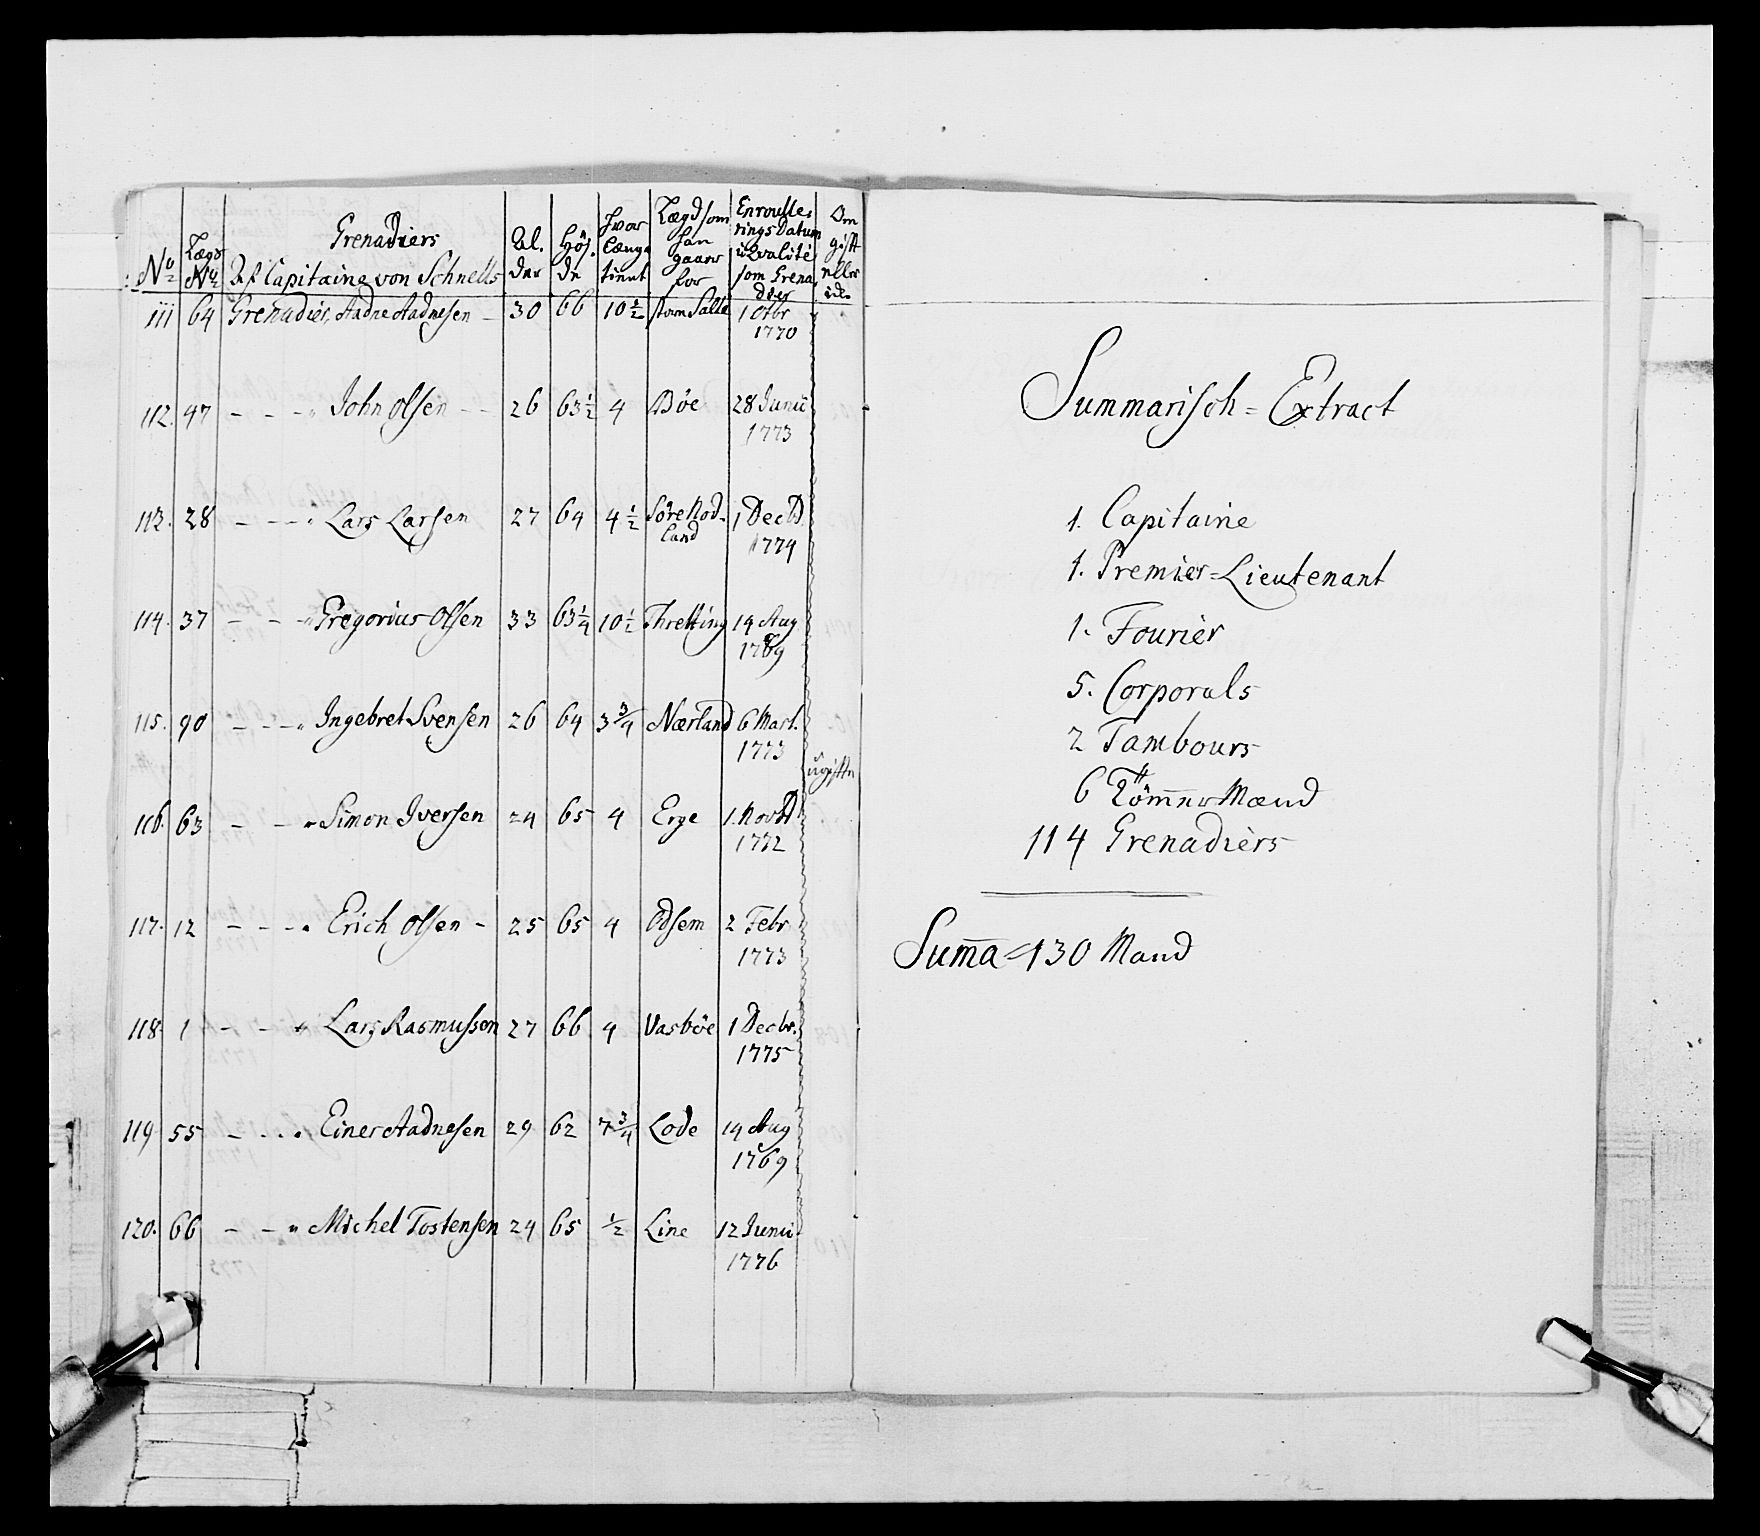 No
Lægs No
Grenadiers
Af Capitaine von Schnells
Al.
der
Höj.
de
hvor
Længe
tient
Lægd som
han
gaaer
for
Enroulle,
rings Datum
i Qvalité
som Grena
dier
Om
gift
eller
ei
111 64 Grenadier, Aadne Aadnesen - 30 66 10 1/2 store Salte 1 Octbr
1770
112. 47 - - - " John Olsen - - 26 63 1/2 4 Böe 28 Junii
1773
113. 28 - - - " Lars Larsen 27 64 4 1/2 Söre Nod- 1 Decb
land 1774
114. 37 - - - " Gregorius Olsen 33 63 1/4 10 1/2 Thretting 14 Aug
1769
115. 90 - - - " Ingebret Svensen 26 64 3 3/4 Nærland 6 Mart.
1773
ugifte
116. 63 - - " Simon Iversen 24 65 4 Erge 1. Novb
1772
117. 12 - - - " Erich Olsen - 25 65 4 Odsem 2 Febr
1773
118 1 - - " Lars Rasmussen 27 66 4 Varbøe 1 Decbr.
1775
119 55 - - - " Einer Aadnesen 29 62 7 3/4 Lode 14 Aug
1769
120. 66 - - " Michel Tostensen 24 65 1/2 Line 12 Junii
1776
Summarisch = Extract
1. Capitaine
1. Premier=Lieutenant
1. Fourier
5. Corporals
2 Tambours
6 Tömmer Mænd
114 Grenadiers
Summa = 130 Mand